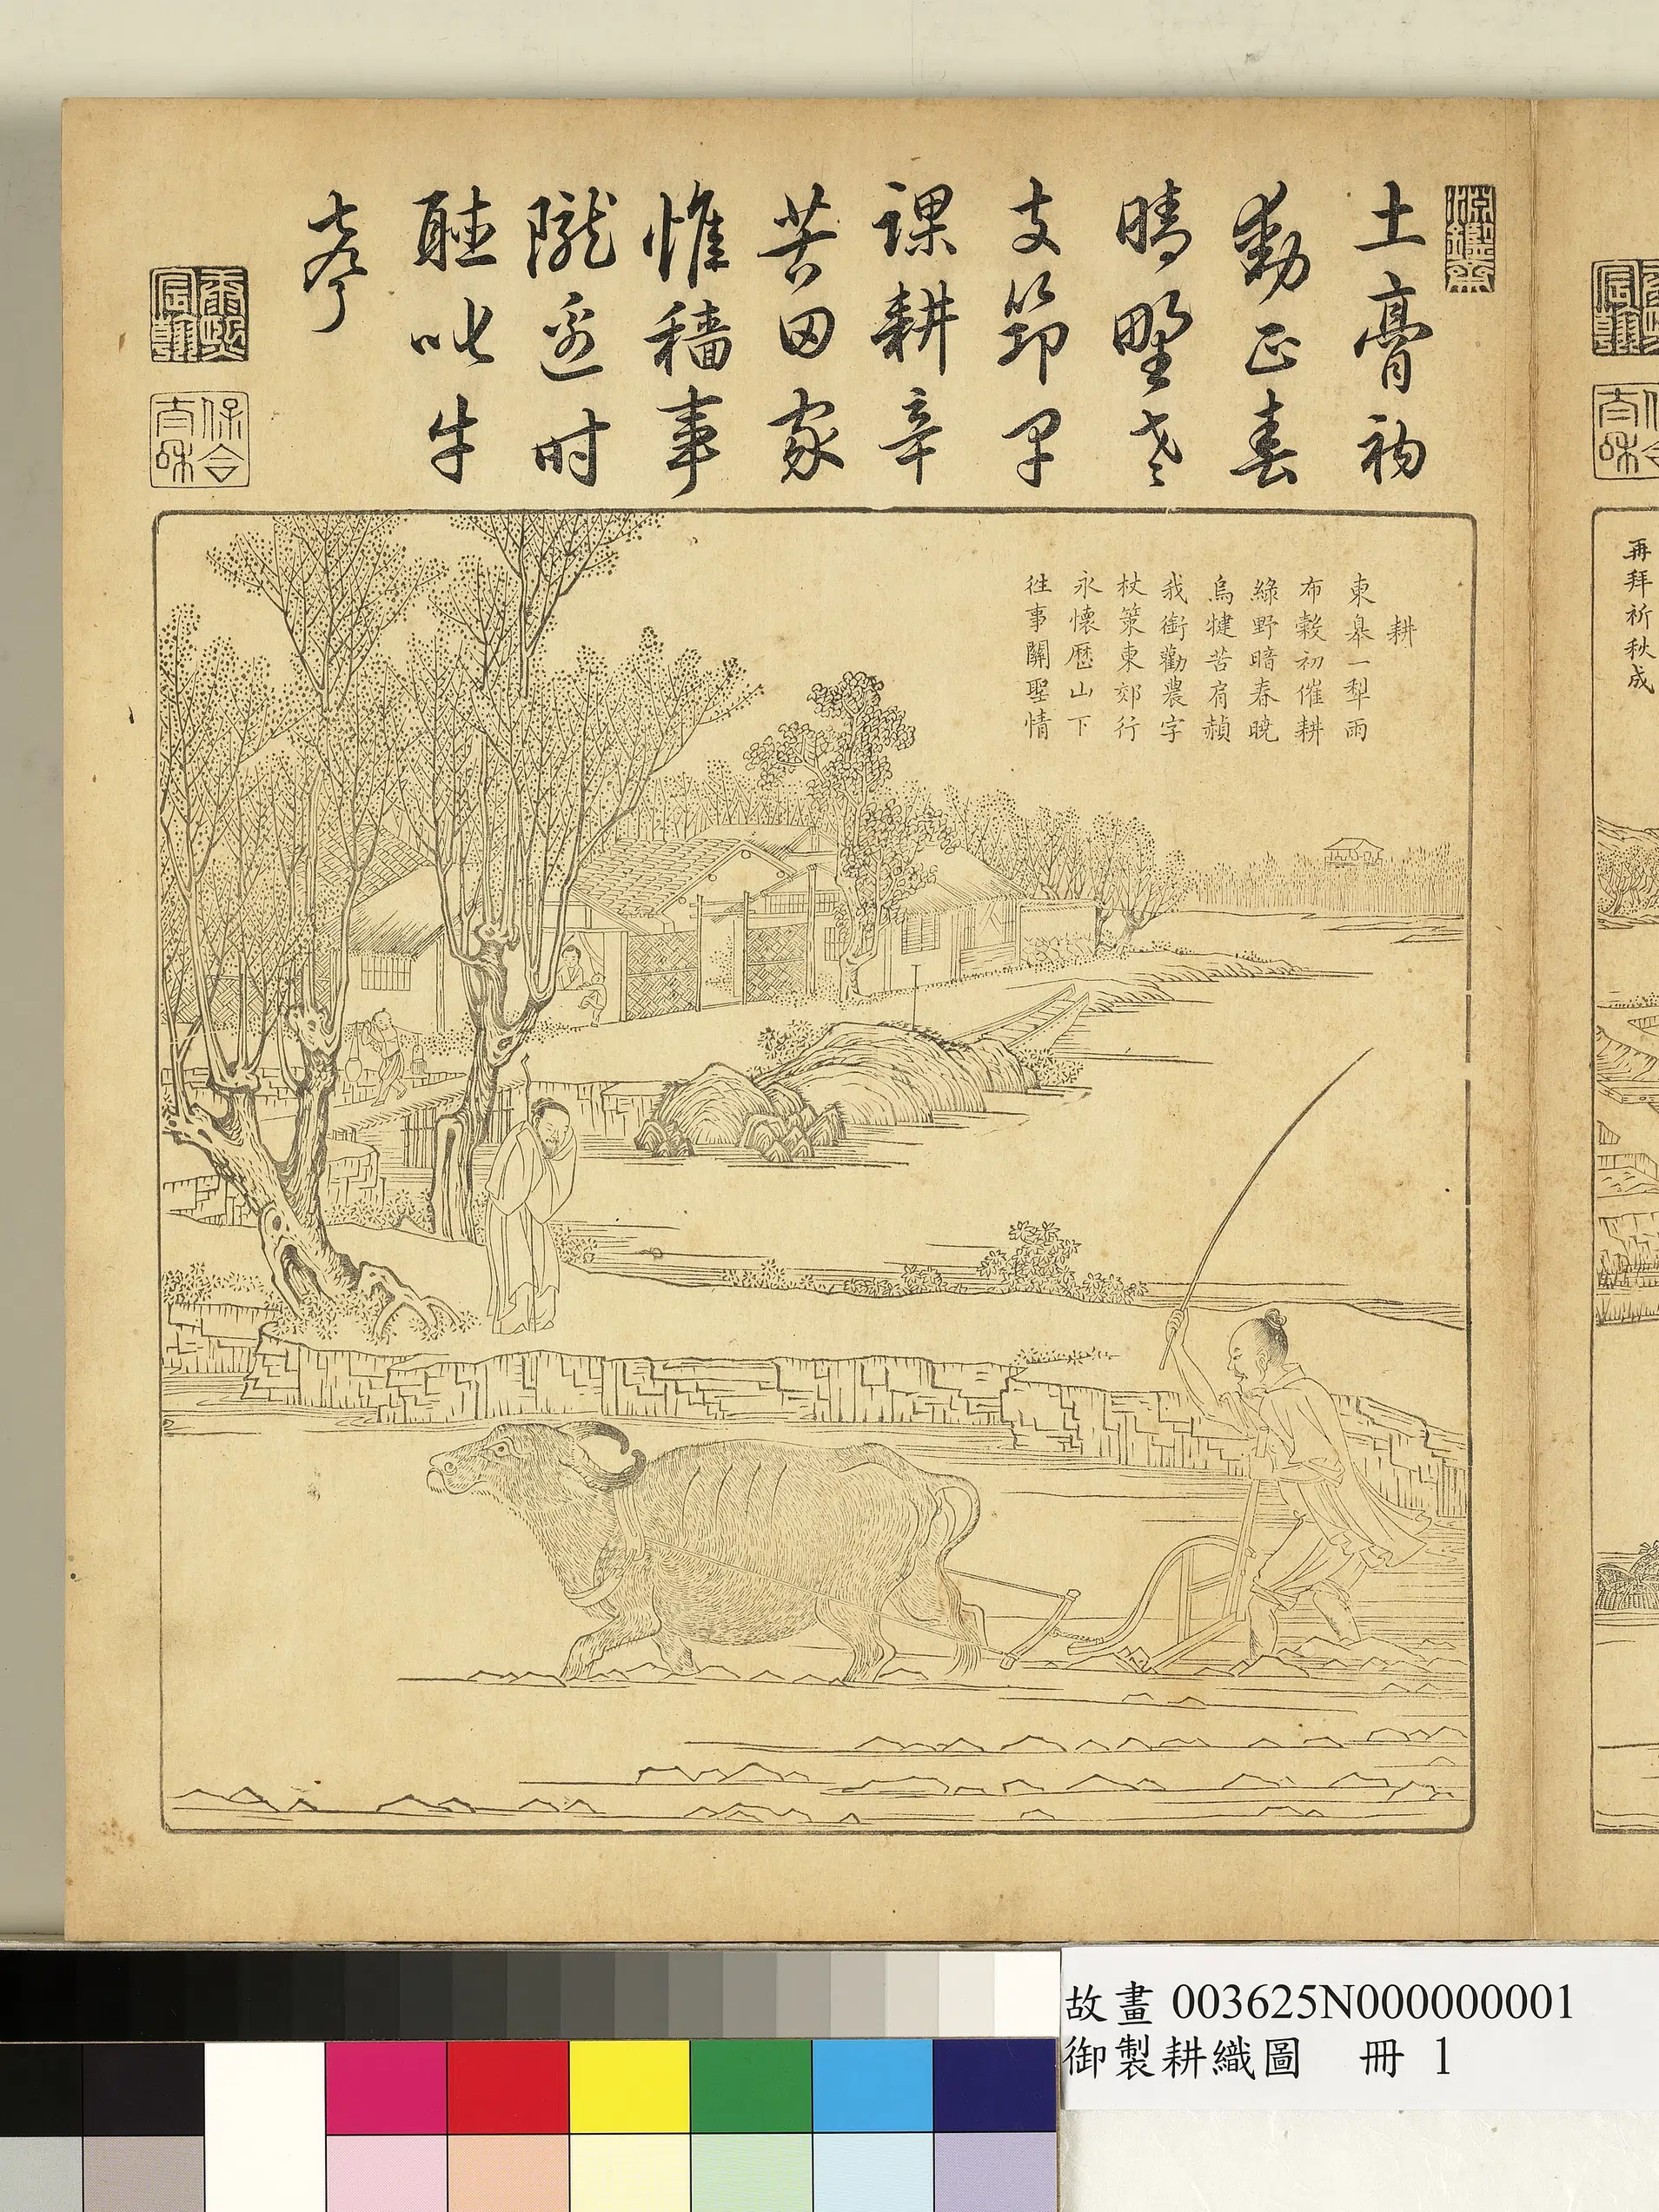 淵鑒齋
土膏初
動正春
晴野老
支筇早
課耕辛
苦田家
惟穡事
隴邊时
聽叱牛
聲
康熙宸翰
保合太和
耕
東皋一犁雨
布穀初催耕
綠野暗春曉
烏犍苦肩赬
我銜勸農字
杖策東郊行
永懷歷山下
往事關聖情
再拜祈秋成
故畫 003625N000000001
御製耕織圖 冊 1